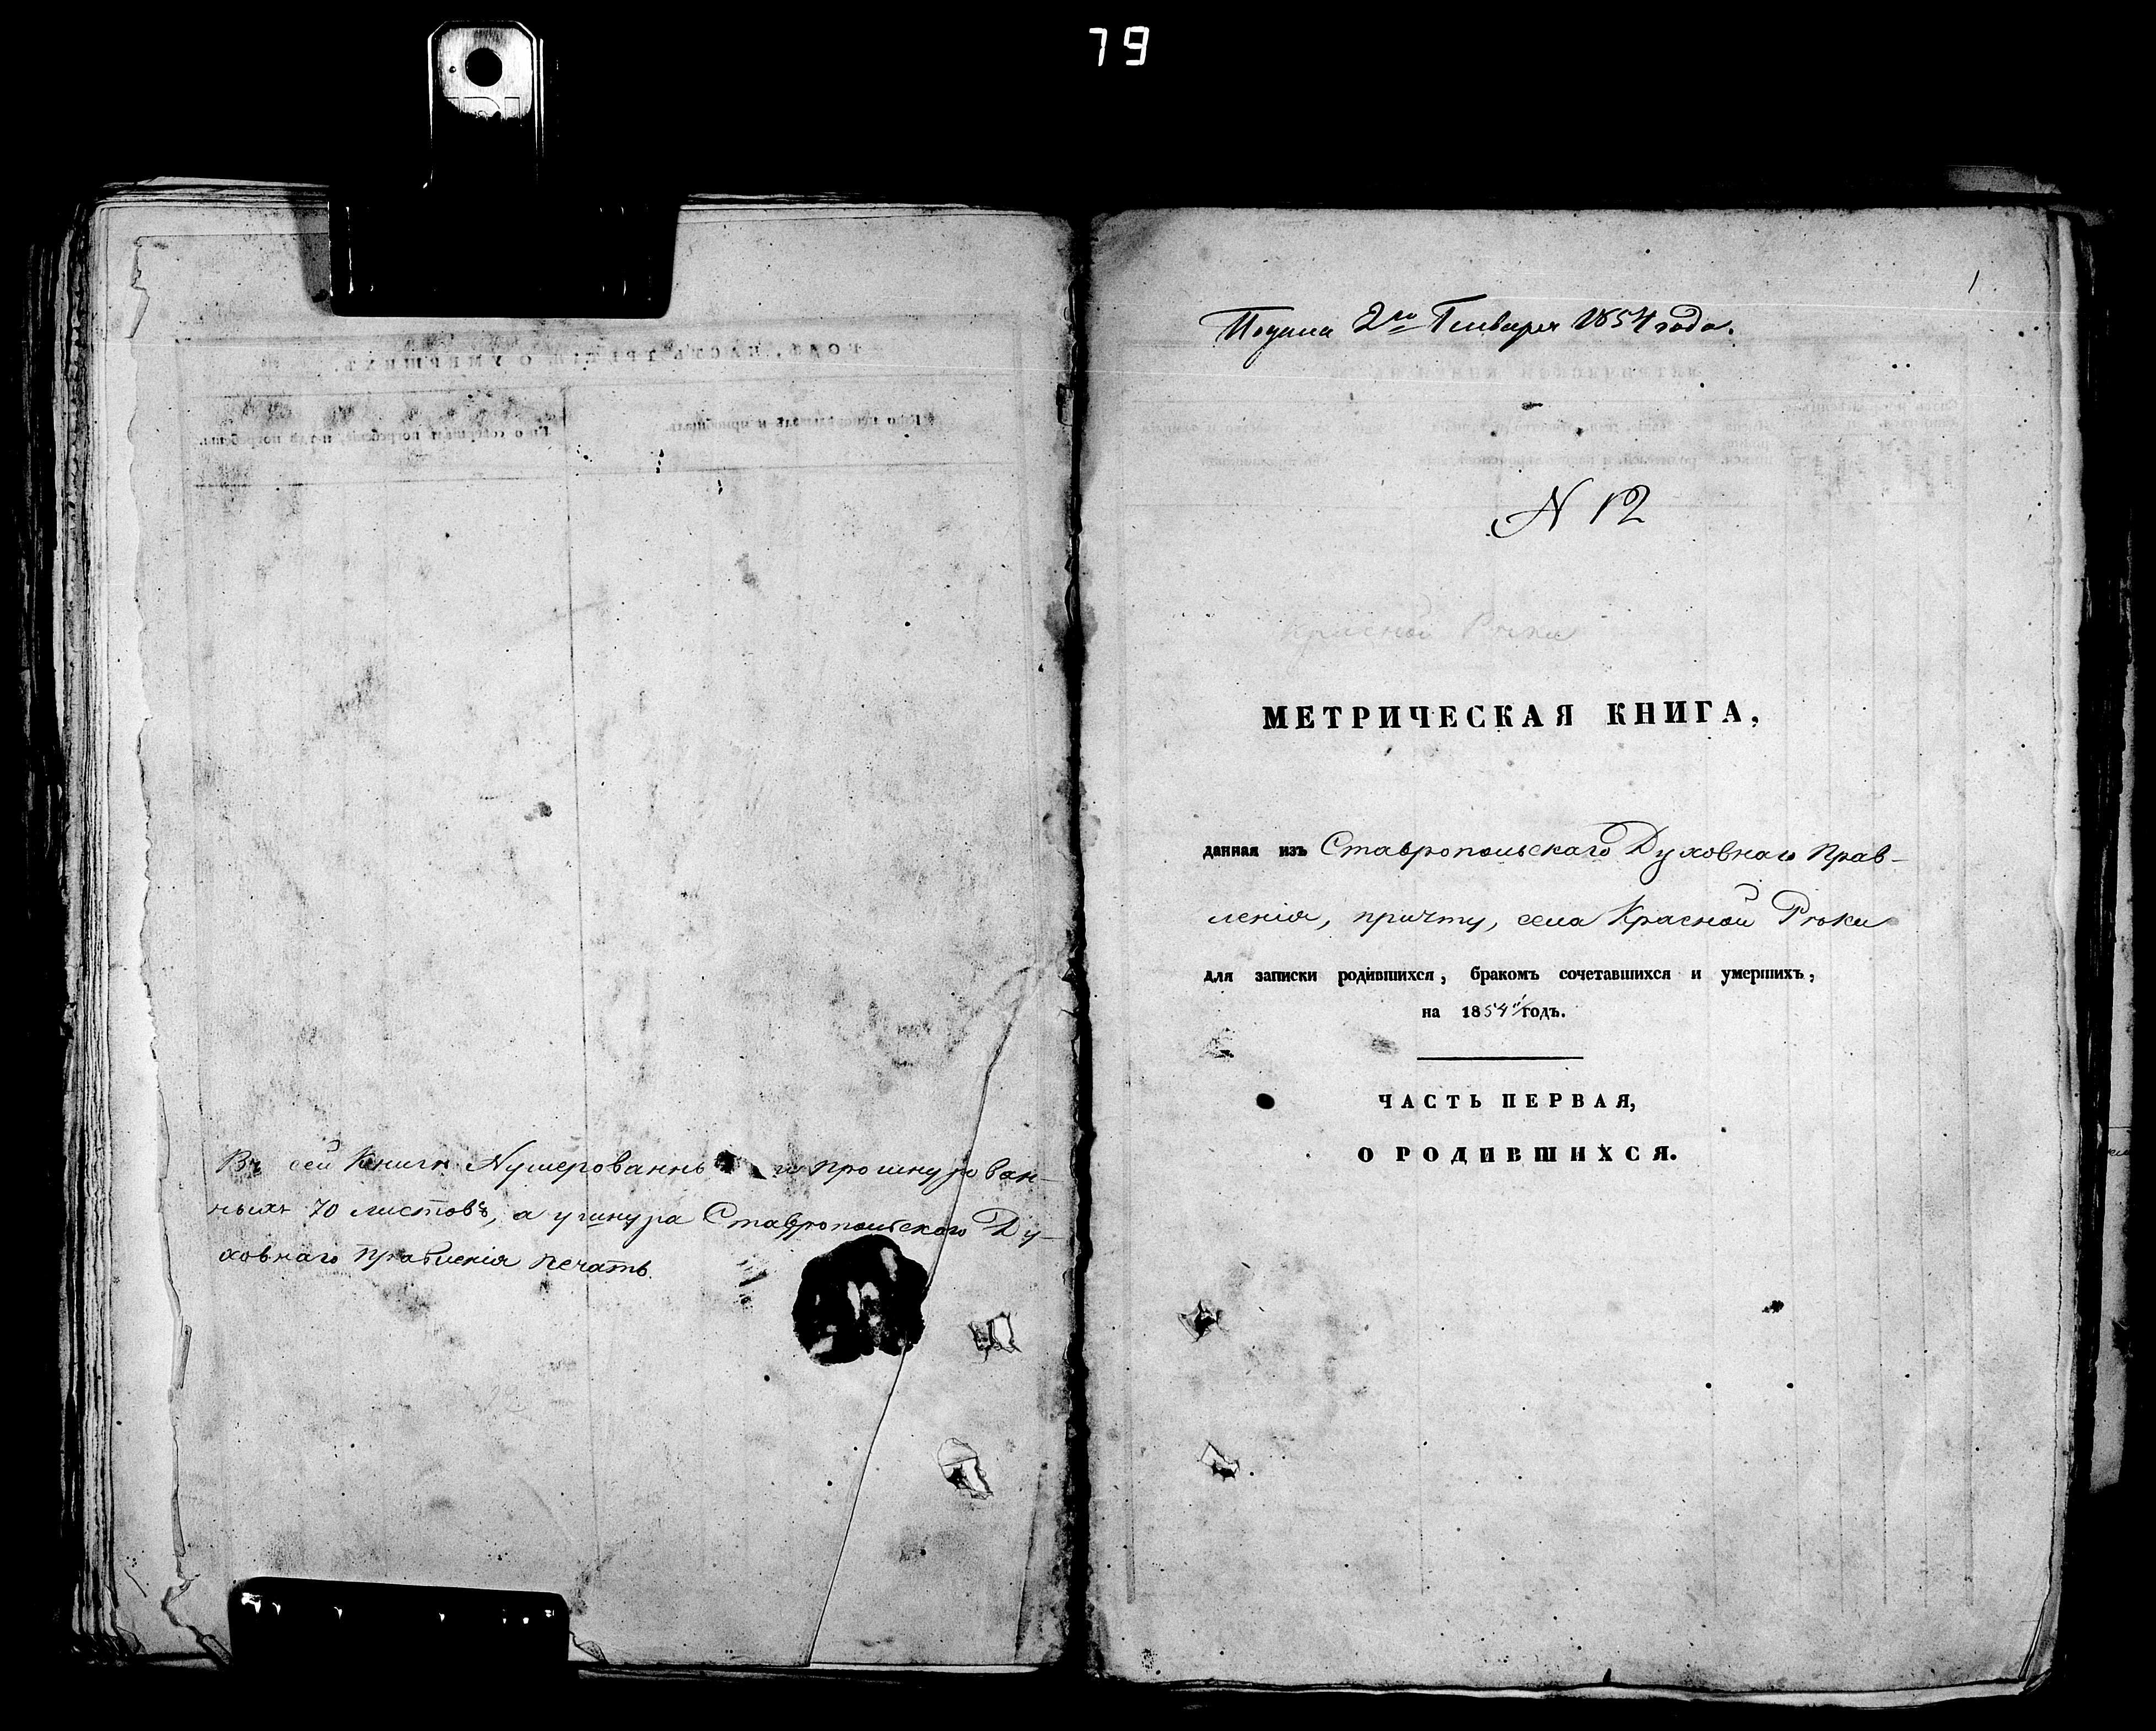 79
Въ сей Книгѣ Нумерованны и прошнурован-
ныхъ 70 листовъ, а у шнура Ставропольскаго Ду-
ховнаго Правленія печать.
1
Подана 2го Генваря 1854 года.
N 12
Красной Рѣки
МЕТРИЧЕСКАЯ КНИГА,
данная изъ Ставропольскаго Духовнаго Прав-
ленія, причту, села Красной Рѣки
для записки родившихся, бракомъ сочетавшихся и умершихъ,
на 1854й годъ.
ЧАСТЬ ПЕРВАЯ,
О РОДИВШИХСЯ.